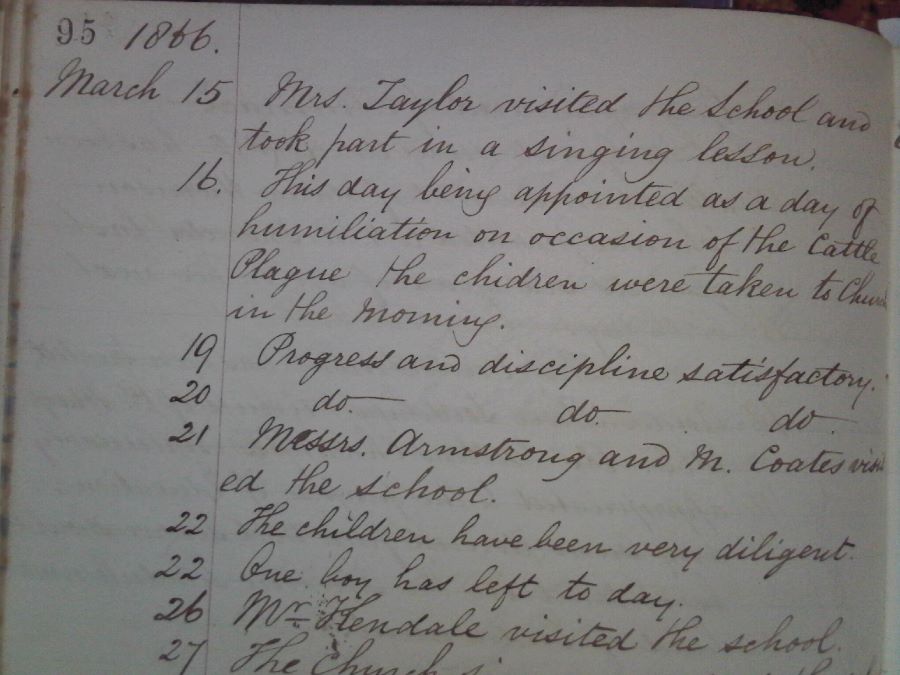 95 1866.
March 15 Mrs. Taylor visited the School and
took part in a singing lesson.
16. This day being appointed as a day of
humiliation on occasion of the Cattle
Plague the chidren were taken to Church
in the Morning.
19 Progress and discipline satisfactory.
20 do. do. do.
21 Messrs. Armstrong and M. Coates visit
ed the school.
22 The children have been very diligent.
22 One boy has left to day.
26 Mr. Kendale visited the school.
27 The Church